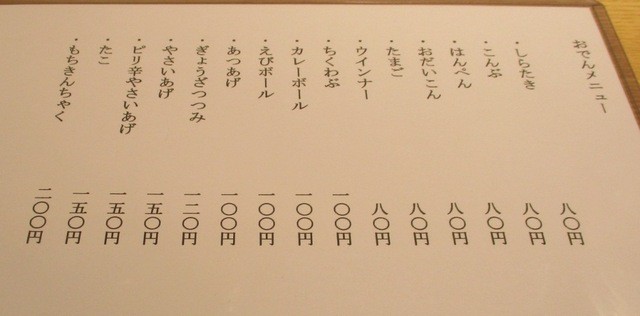 おでんメニュー
・しらたき 八〇円
・こんぶ 八〇円
・はんぺん 八〇円
・おだいこん 八〇円
・たまご 八〇円
・ウインナー 八〇円
・ちくわぶ 一〇〇円
・カレーボール 一〇〇円
・えびボール 一〇〇円
・あつあげ 一〇〇円
・ぎょうざつつみ 一二〇円
・やさいあげ 一五〇円
・ピリ辛やさいあげ 一五〇円
・たこ 一五〇円
・もちきんちゃく 二〇〇円